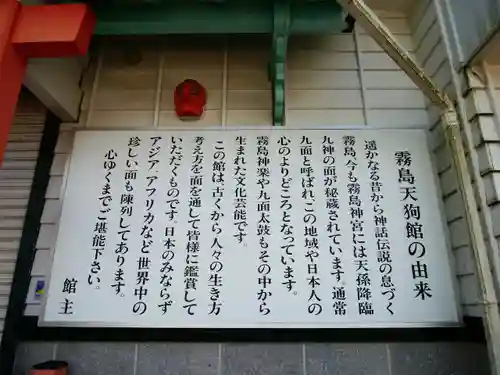 霧島天狗館の由来
遥かなる昔から神話伝説の息づく
霧島、今も霧島神宮には天孫降臨
九神の面が秘蔵されています。通常
九面と呼ばれ、この地域や日本人の
心のよりどころとなっています。
霧島神楽や九面太鼓もその中から
生まれた文化芸能です。
この館は古くから人々の生き方
考え方を面を通して皆様に鑑賞して
いただくものです。日本のみならず
アジア、アフリカなど世界中の
珍しい面も陳列してあります。
心ゆくまでご堪能下さい。
館主